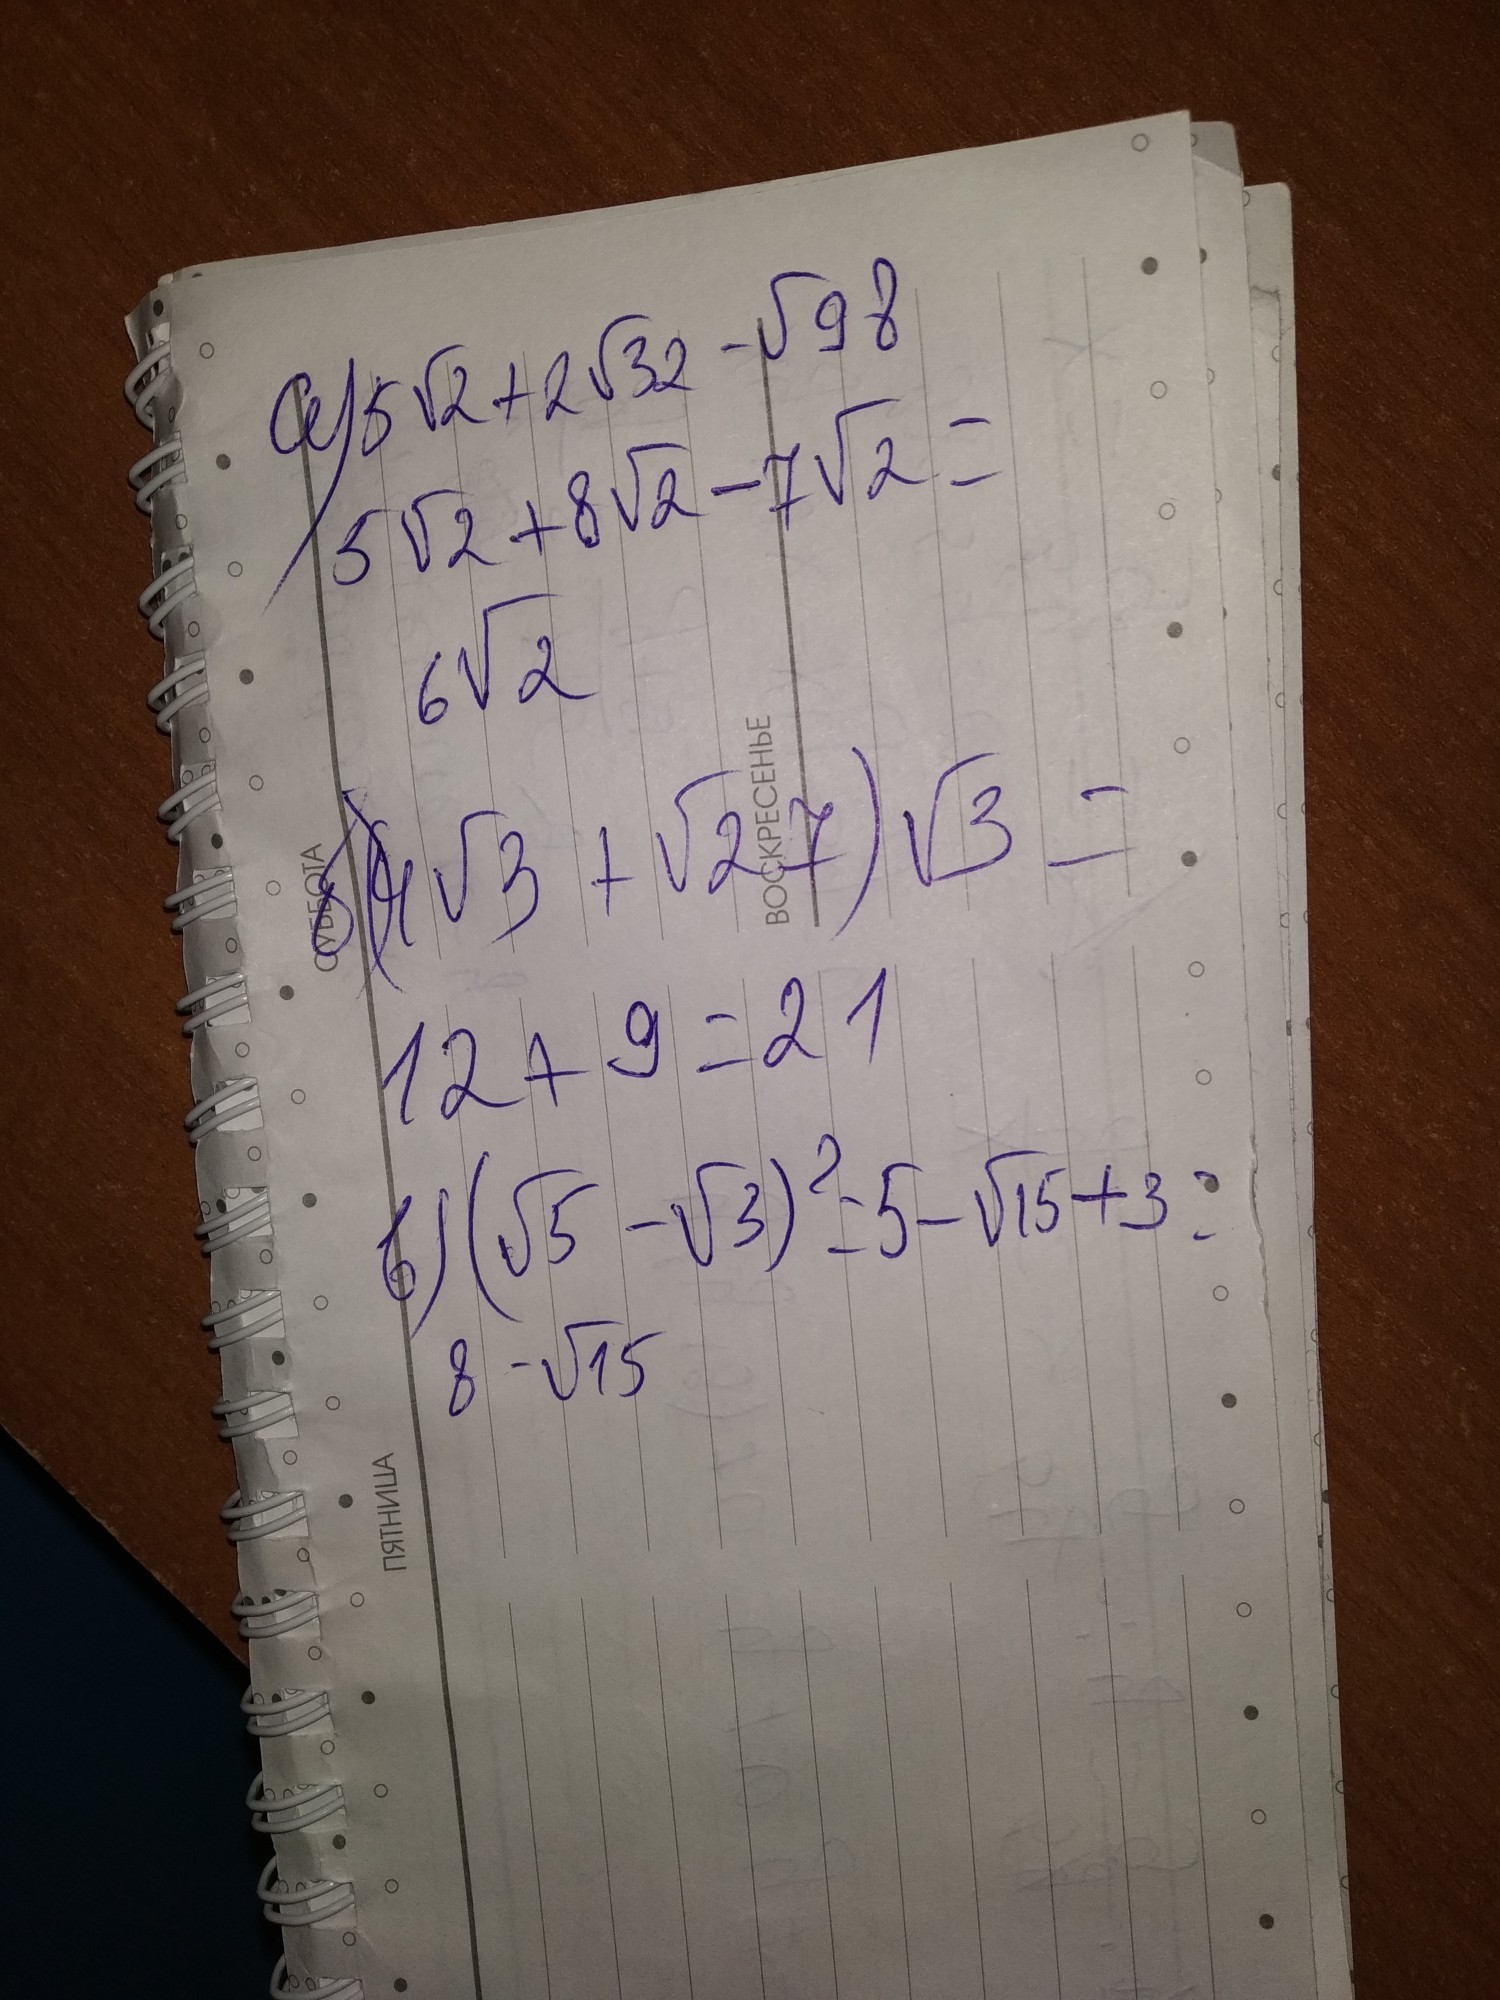 а) 5√2 + 2√32 - √98
5√2 + 8√2 - 7√2 =
6√2
б) (4√3 + √27) √3 =
12 + 9 = 21
в) (√5 - √3)² = 5 - √15 + 3 =
8 - √15
СУББОТА
ВОСКРЕСЕНЬЕ
ПЯТНИЦА